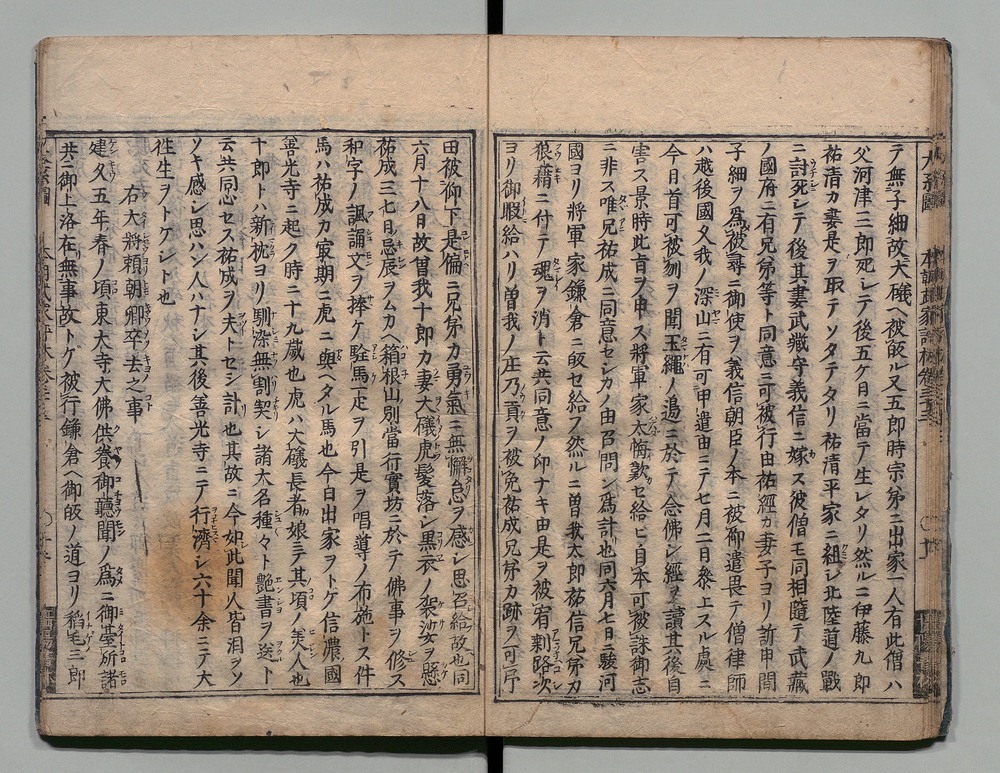 テ無子細故大礒ヘ被皈ル又五郎時宗弟ニ出家一人有此僧ハ
父河津三郎死シテ後五ケ月ニ當テ生レタリ然ルニ伊藤九郎
祐清カ妻是ヲ取テソタテタリ祐清平家ニ組シ北陸道ノ戰
ニ討死シテ後其妻武藏守義信ニ嫁ス彼僧モ同相隨テ武藏
ノ國府ニ有兄弟等ト同意ニ可被行由祐經カ妻子ヨリ訴申間
子細ヲ為被尋ニ御使ヲ義信朝臣ノ本ニ被仰遣畏テ僧律師
ハ越後國久我ノ深山ニ有可甲遣由ニテ七月二日參上スル處ニ
今日首可被刎ヲ聞玉繩ノ邉ニ於テ念佛シ經ヲ讀其後自
害ス景時此旨ヲ申ス將軍家太悔歎セ給ヒ自本可被誅御志
ニ非ス唯兄祐成ニ同意セシカノ由召問ン為計也同六月七日ニ駿河
國ヨリ將軍家鎌倉ニ皈セ給フ然ルニ曽我太郎祐信兄弟カ
狼藉ニ付テ魂ヲ消ト云共同意ノ印ナキ由是ヲ被宥剰路次
ヨリ御暇給ハリ曽我ノ庄乃貢ヲ被免祐成兄弟カ跡ヲ可弔
田被仰下是偏ニ兄弟カ勇氣ニ無懈怠ヲ感シ思召給故也同
六月十八日故曽我十郎カ妻大礒虎髪落シ黒衣ノ袈裟ヲ懸
祐成三七日忌辰ヲムカヘ箱根山別當行實坊ニ於テ佛事ヲ修ス
和字ノ諷誦文ヲ捧ケ駐馬一疋ヲ引是ヲ唱導ノ布施トス件
馬ハ祐成カ㝡期ニ虎ニ與ヘタル馬也今日出家ヲトケ信濃國
善光寺ニ起ク時ニ十九歳也虎ハ大礒長者カ娘ニテ其頃ノ美人也
十郎トハ新枕ヨリ馴染無割契シ諸大名種々ト艶書ヲ送ト
云共同心セス祐成ヲ夫トセシ計也其故ニ今如此聞人皆泪ヲソ
ソキ感シ思ハン人ハナシ其後善光寺ニテ行濟シ六十余ニテ大
徃生ヲトケシト也
右大將頼朝卿卒去之事
建久五年春ノ頃東大寺大佛供養御聽聞ノ為ニ御臺所諸
共ニ御上洛在無事故トケ被行鎌倉御皈ノ道ヨリ稻毛三郎